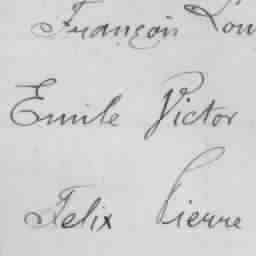 François Lou
Emile Victor
Felix Pierre